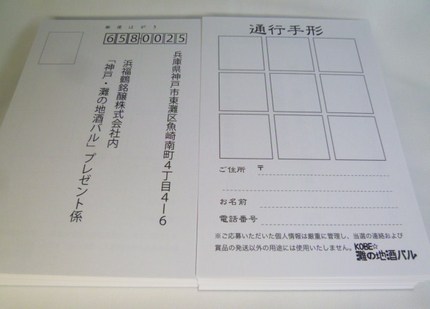 郵便はがき
6580025
兵庫県神戸市東灘区魚崎南町4丁目4ー6
浜福鶴銘醸株式会社内
「神戸・灘の地酒バル」プレゼント係
通行手形
ご住所 〒
お名前
電話番号
※ご応募いただいた個人情報は厳重に管理し、当選の連絡および
賞品の発送以外の用途には使用いたしません。
KOBE☆
灘の地酒バル